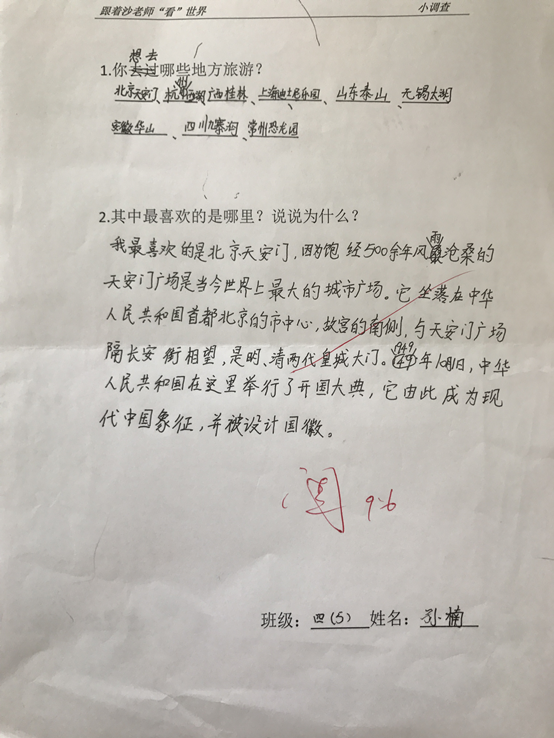 跟着沙老师“看”世界 小调查
想去
1.你去过哪些地方旅游？
北京天安门、杭州西湖、广西桂林、上海迪士尼乐园、山东泰山、无锡太湖
安徽华山、四川九寨沟、常州恐龙园
2.其中最喜欢的是哪里？说说为什么？
我最喜欢的是北京天安门，因为饱经500余年风雨沧桑的
天安门广场是当今世界上最大的城市广场。它坐落在中华
人民共和国首都北京的市中心，故宫的南侧，与天安门广场
隔长安街相望，是明、清两代皇城大门。1949年10月1日，中华
人民共和国在这里举行了开国大典，它由此成为现
代中国象征，并被设计国徽。
阅 9.6
班级：四（5） 姓名：孙楠